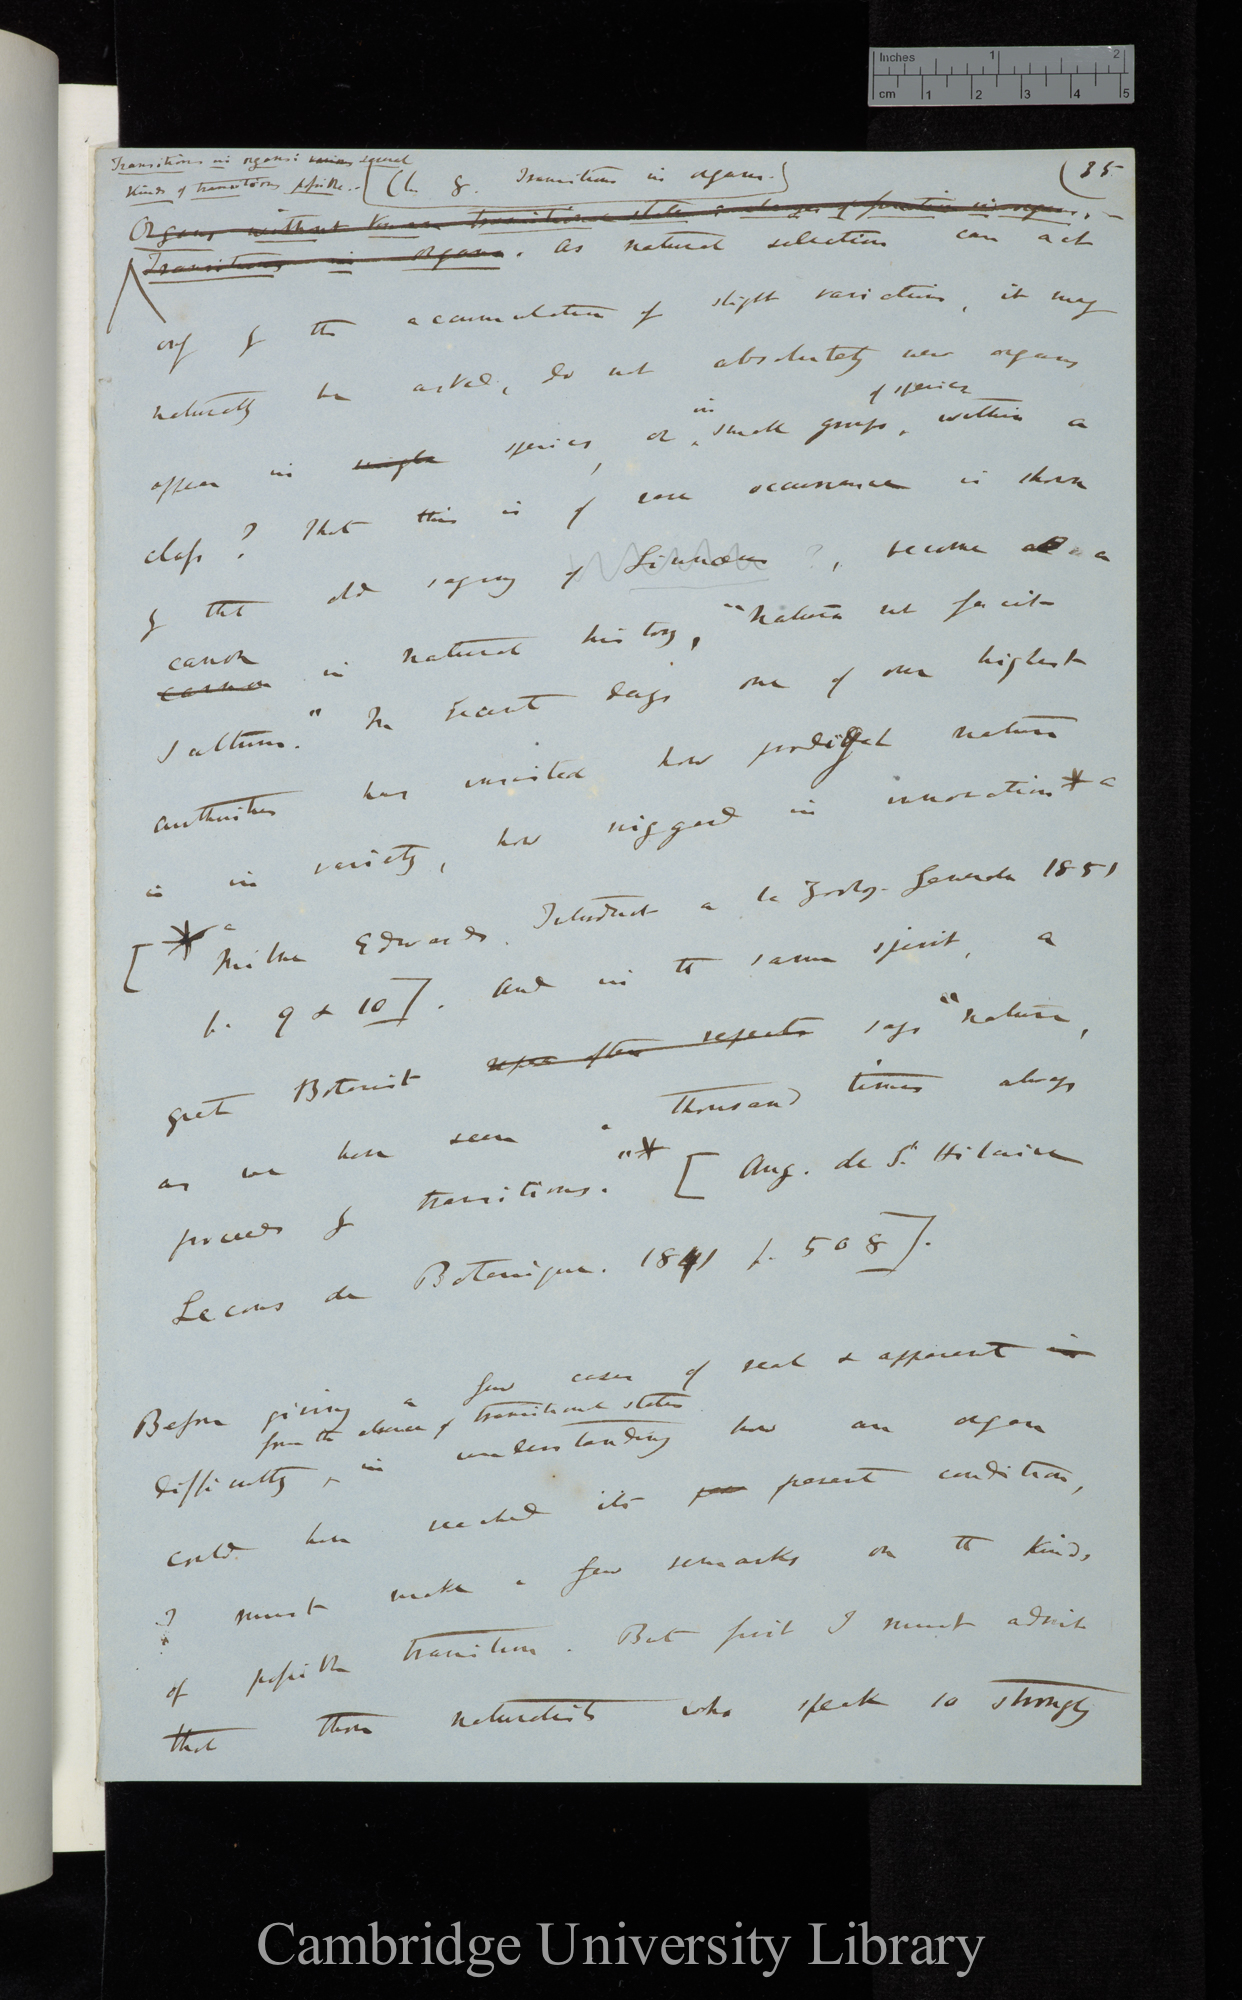 Inches 1 2
cm 1 2 3 4 5
Transitions in organs: various several
Kinds of transitions possible.—
(Ch 8. Transitions in organs.)
(35
Organs without known transitional state & changes of function in organs.—
Transitions in organs. As natural selection can act
only by the accumulation of slight variations, it may
naturally be asked, do not absolutely new organs
in of species
appear in single species, or small groups, within a
class? That this is of rare occurrence is shown
by the old saying of Linnæus ?, become a
canon
canon in natural history, "Natura non facit
saltum." In recent days one of our highest
authorities has insisted how prodigal nature
is in variety, how niggard in innovation* a
[* a Milne Edwards. Introduct a la Zoolog. Generale 1851
p. 9 & 10]. And in the same spirit, a
great Botanist often repeats says "Nature,
as we have seen a thousand times always
proceeds by transitions."* [Aug. de St. Hilaire
Lecons de Botanique. 1841 p. 508].
Before giving a few cases of real & apparent in
from the absence of transitional states
difficulty, in understanding how an organ
could have reached its present condition,
I must make a few remarks on the kinds
of possible transition. But first I must admit
that those naturalists who speak so strongly
Cambridge University Library